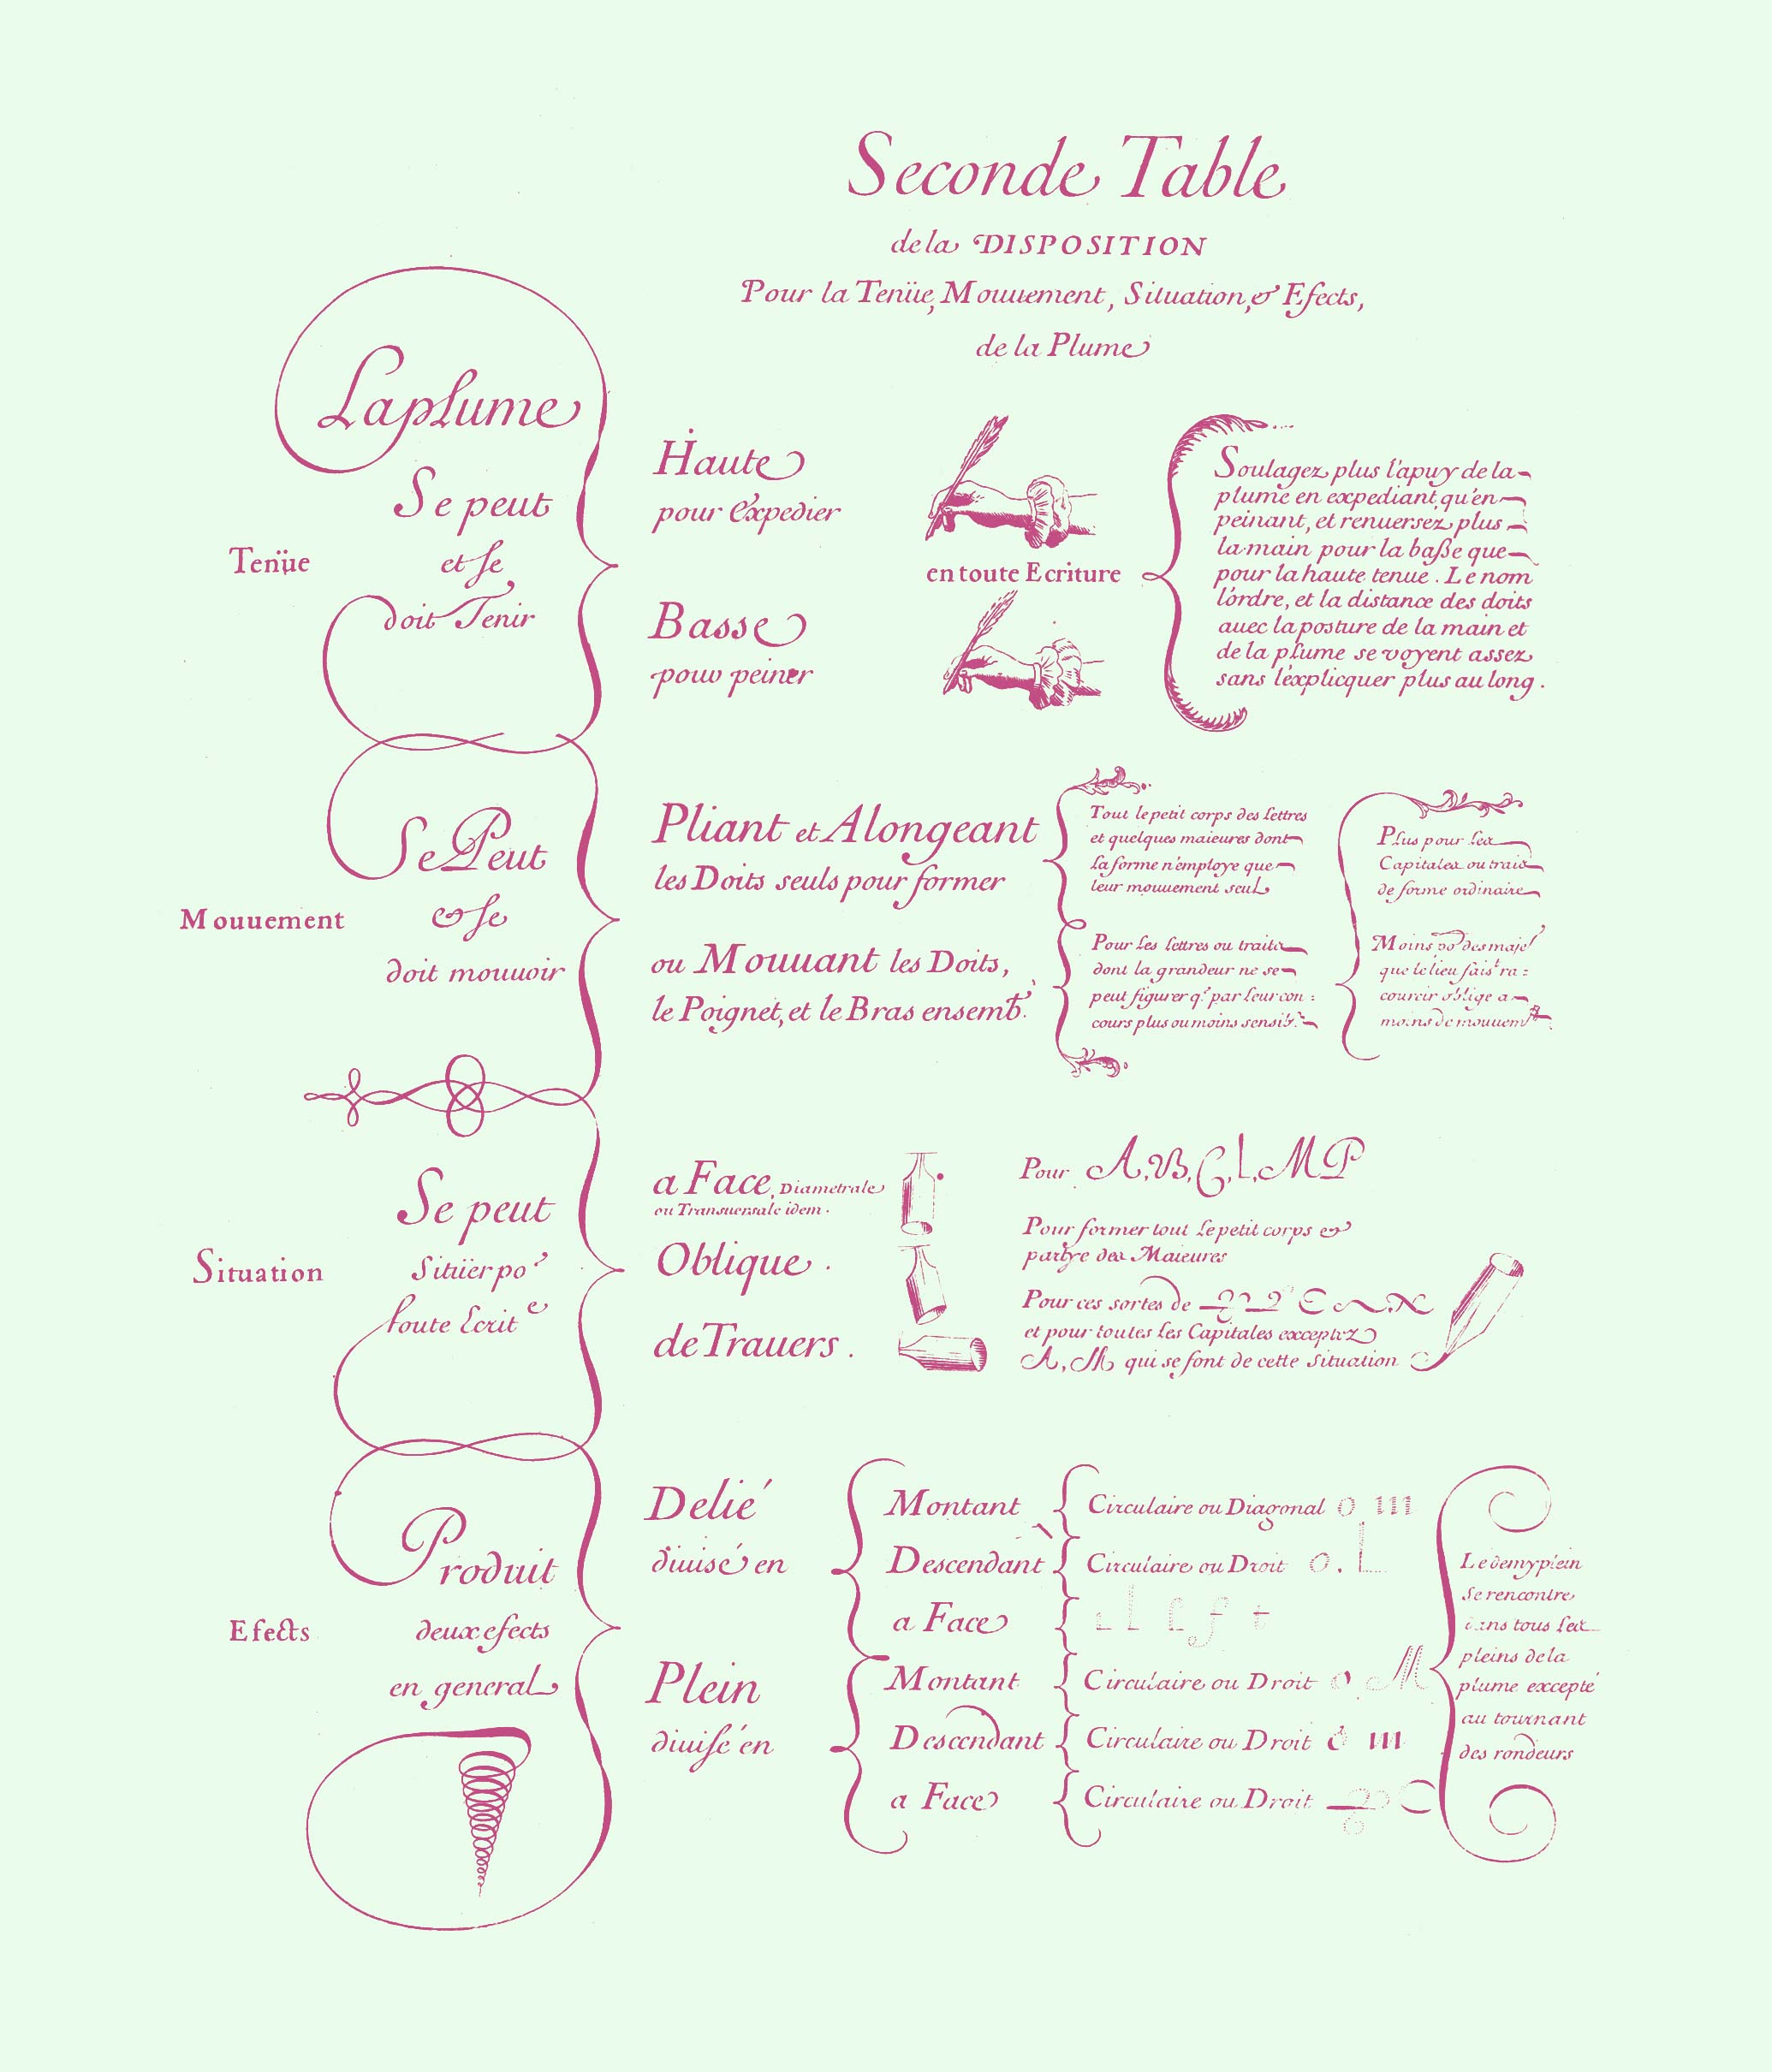 Seconde Table
de la DISPOSITION
Pour la Tenüe, Mouuement, Situation, & Efects,
de la Plume
Laplume
Se peut
et se
doit Tenir
Tenüe
Haute
pour Expedier
Basse
pour peiner
en toute Ecriture
Soulagez plus l'apuy de la
plume en expediant, qu'en
peinant, et renuersez plus
la main pour la baße que
pour la haute tenue. Le nom
l'ordre, et la distance des doits
auec la posture de la main et
de la plume se voyent assez
sans l'explicquer plus au long.
Se Peut
& se
doit mouuoir
Mouuement
Pliant et Alongeant
les Doits seuls pour former
ou Mouuant les Doits,
le Poignet, et le Bras ensemb.
Tout le petit corps des lettres
et quelques maieures dont
la forme n'employe que
leur mouuement seul
Pour les lettres ou traits
dont la grandeur ne se
peut figurer q. par leur con:
cours plus ou moins sensib.
Plus pour les
Capitales ou traits
de forme ordinaire
Moins po' des maje
que le lieu fais.t ra:
courcir oblige a
moins de mouuem
Se peut
Sitüer po'
toute Ecrit e
Situation
a Face, Diametrale
ou Transuersale idem.
Oblique.
de Trauers.
Pour A, B, C, l, M P
Pour former tout le petit corps &
partye des Maieures
Pour ces sortes de
et pour toutes les Capitales exceptez
A, M qui se font de cette Situation
Produit
deux efects
en general
Efects
Delié
diuisé en
Montant
Circulaire ou Diagonal o m
Descendant
Circulaire ou Droit o. l
a Face
Plein
diuisé en
Montant
Circulaire ou Droit o M
Descendant
Circulaire ou Droit o m
a Face
Circulaire ou Droit
Le demy plein
se rencontre
dans tous les
pleins de la
plume excepté
au tournant
des rondeurs